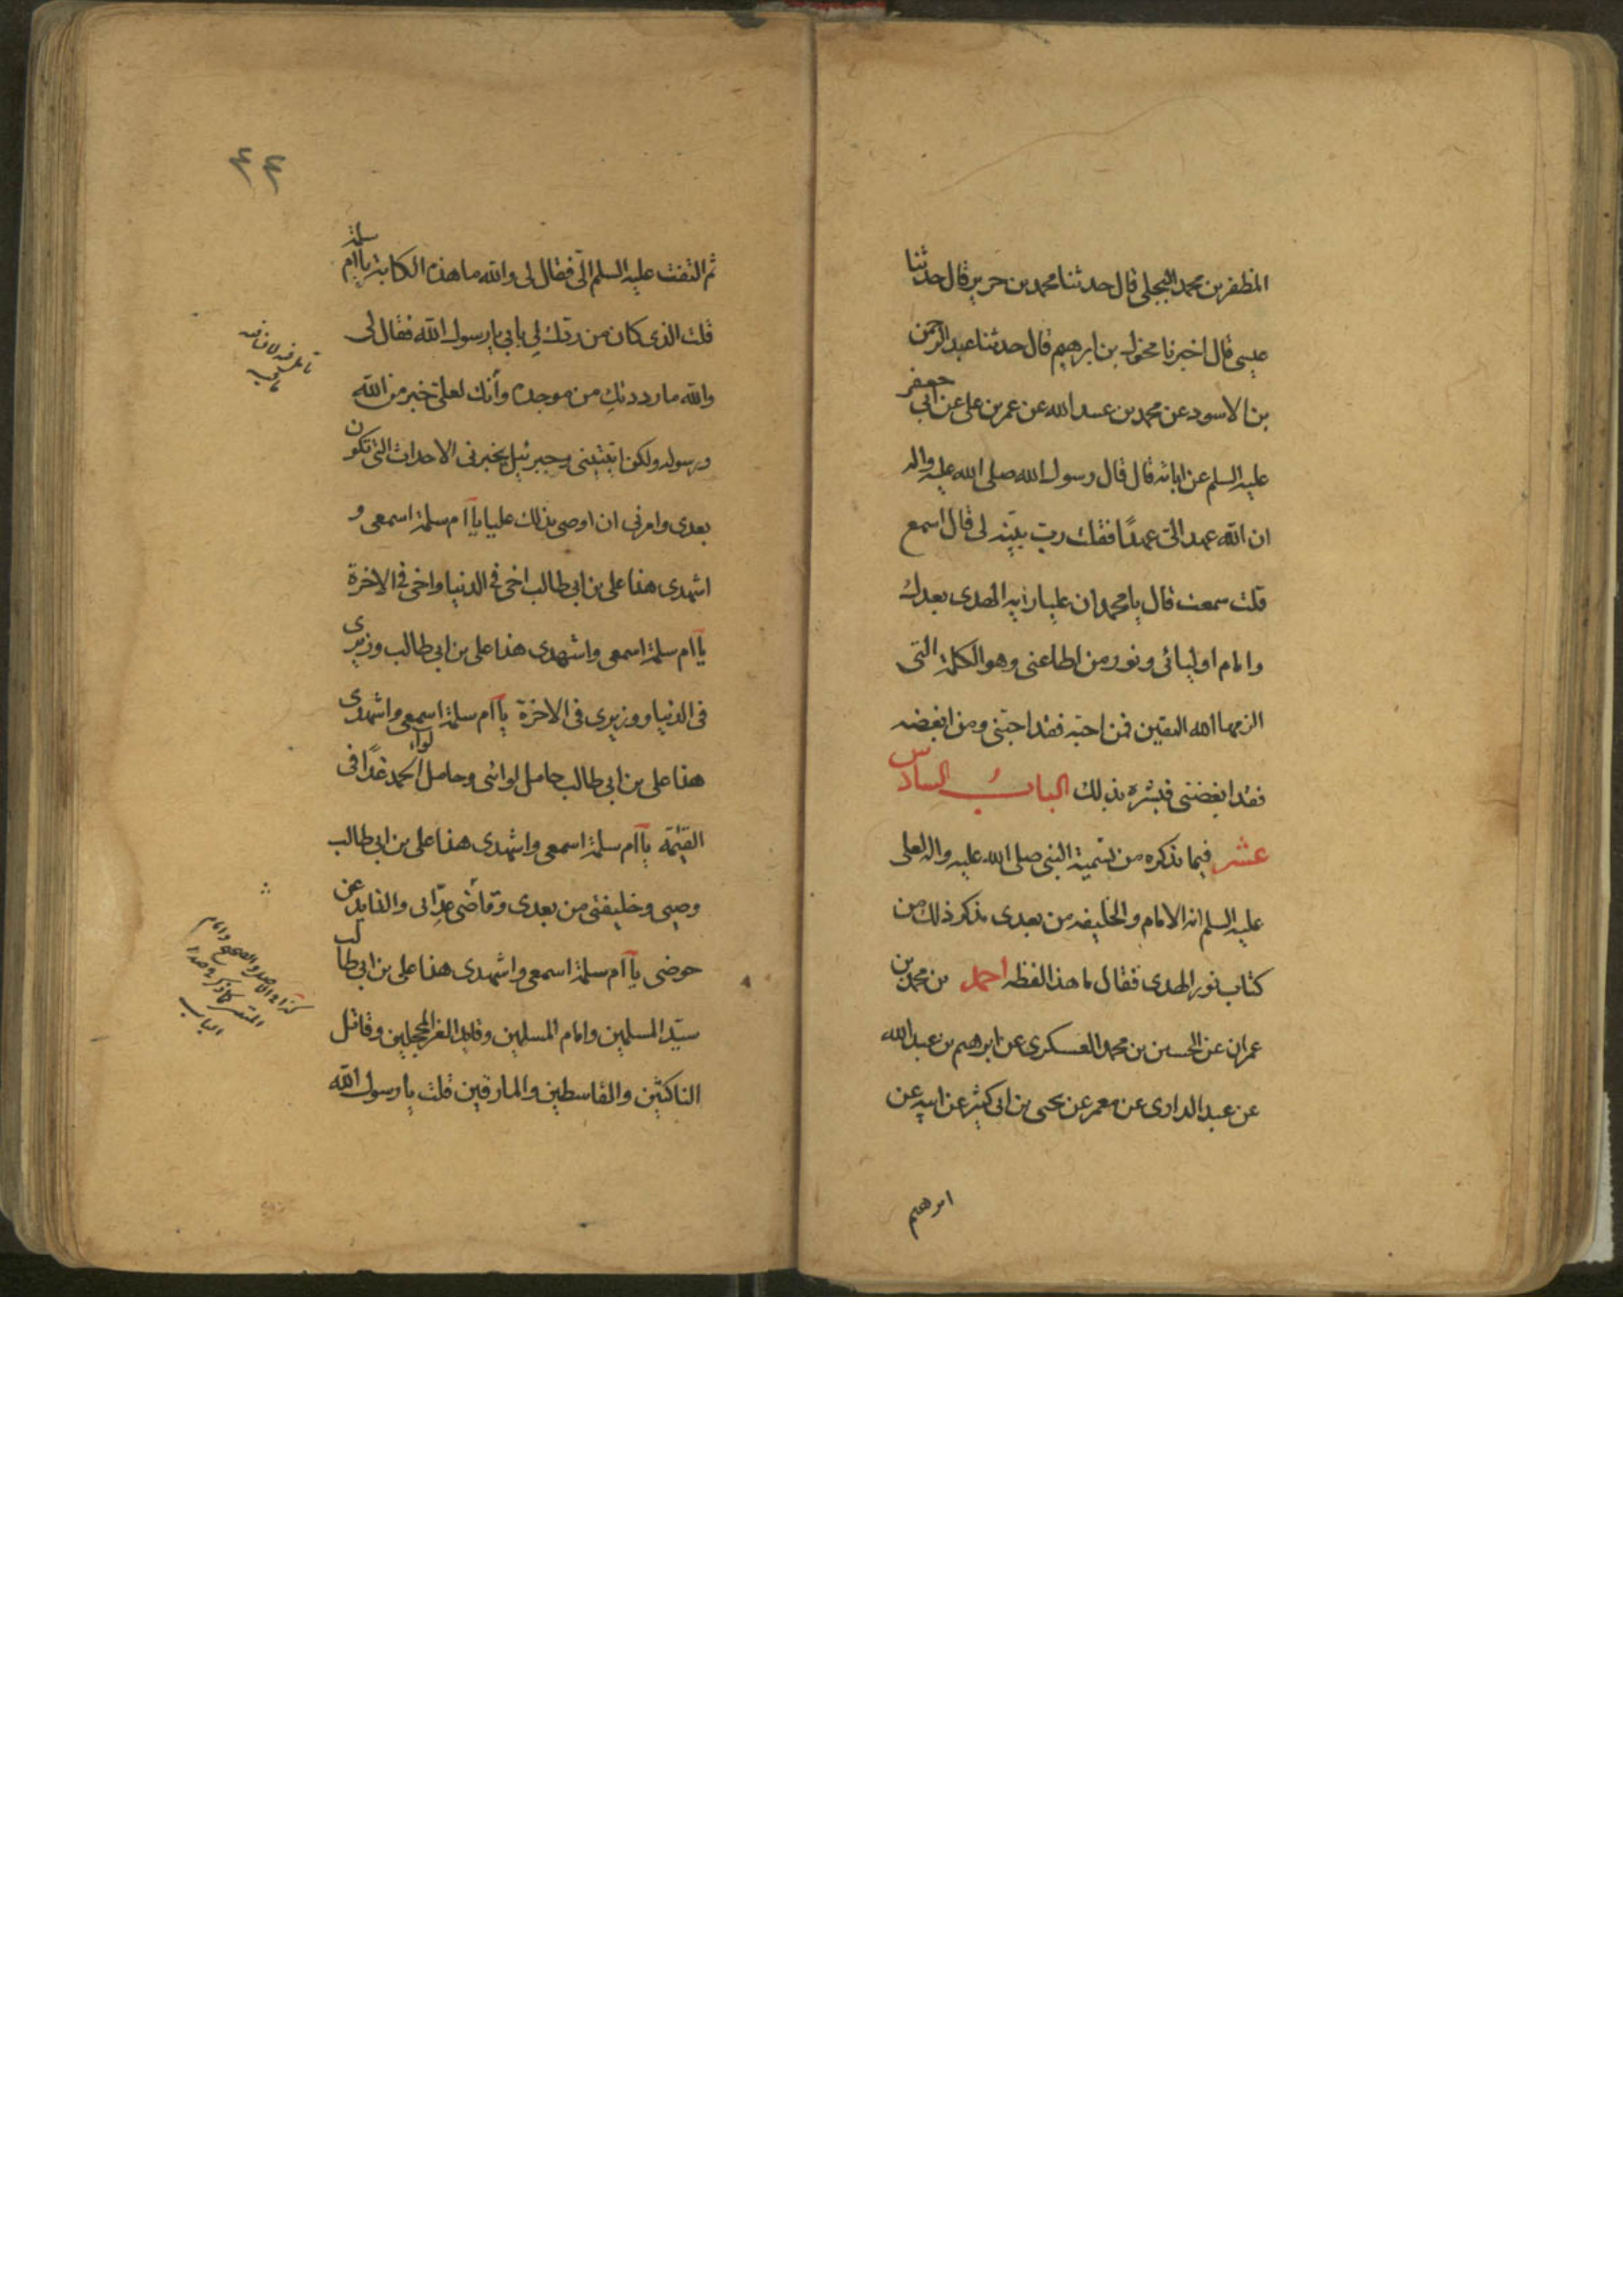 المظفر بن محمد البجلي قال حدثنا محمد بن جرير قال حدثنا
عيسى قال اخبرنا مخول بن ابرهيم قال حدثنا عبد الرحمن
بن الاسود عن محمد بن عبيد الله عن عمر بن على عن ابي جعفر
عليه السلم عن ابائه قال قال رسول الله صلى الله عليه واله
ان الله عهد الىّ عهدًا فقلت ربّ بيّنه لى قال اسمع
قلت سمعت قال يا محمد ان عليا راية الهدى بعدك
وامام اوليائى ونور من اطاعنى وهو الكلمة التى
الزمها الله المتقين فمن احبّه فقد احبّنى ومن ابغضه
فقد ابغضنى فبشره بذلك الباب السادس
عشر فيما نذكره من تسمية النبى صلى الله عليه واله لعلى
عليه السلم انه الامام والخليفه من بعدى نذكر ذلك من
كتاب نور الهدى فقال ما هذا لفظه احمد بن محمد بن
عمران عن الحسين بن محمد العسكرى عن ابرهيم بن عبد الله
عن عبد الداوى عن معمر عن يحيى بن ابى كثير عن ابيه عن
ابرهيم
٤٤
ثم التفت عليه السلم الىّ فقال لى والله ما هذه الكابة يا ام سلمة
قلت الذى كان من ردّك لى يا بى يا رسول الله فقال لى
والله ما رددتك من موجدة وأنك لعلى خير من الله
ورسوله ولكن اتيتينى وجبرئيل يخبرنى الاحداث التى تكون
بعدى وامرنى ان اوصى بذلك عليا يا ام سلمة اسمعى و
اشهدى هذا على بن ابى طالب اخى فى الدنيا واخى فى الاخرة
يا ام سلمة اسمعى واشهدى هذا على بن ابى طالب وزيرى
فى الدنيا ووزيرى فى الاخرة يا ام سلمة اسمعى واشهدى
هذا على بن ابى طالب حامل لوائى وحامل لواء الحمد غدًا فى
القيمة يا ام سلمة اسمعى واشهدى هذا على بن ابى طالب
وصيى وخليفتى من بعدى وقاضى عداتى والذايد عن
حوضى يا ام سلمة اسمعى واشهدى هذا على بن ابى طالب
سيّد المسلمين وامام المسلمين وقايد الغر المحجلين وقاتل
الناكثين والقاسطين والمارقين قلت يا رسول الله